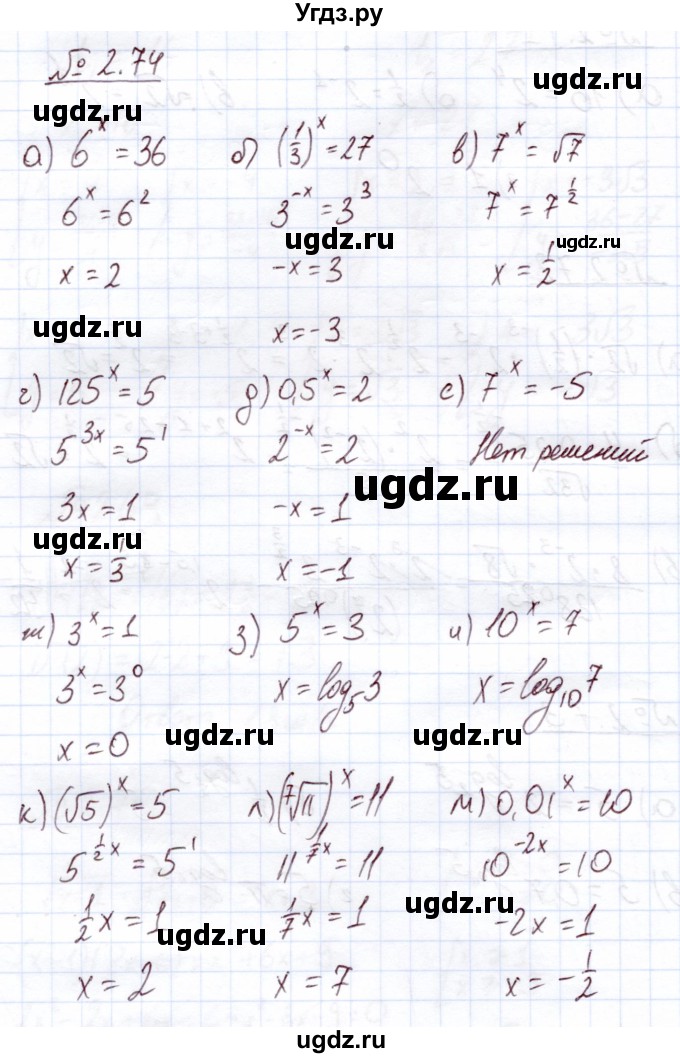 Угдз.ру
№ 2.74
ugdz.ru ugdz.ru
а) 6^x = 36 б) (1/3)^x = 27 в) 7^x = √7
6^x = 6^2 3^{-x} = 3^3 7^x = 7^{1/2}
ugdz.ru ugdz.ru
x = 2 -x = 3 x = 1/2
ugdz.ru ugdz.ru
x = -3
г) 125^x = 5 д) 0,5^x = 2 е) 7^x = -5
5^{3x} = 5^1 2^{-x} = 2 Нет решений
ugdz.ru
3x = 1 -x = 1
ugdz.ru
x = 1/3 x = -1
ж) 3^x = 1 з) 5^x = 3 и) 10^x = 7
3^x = 3^0 x = log_5 3 x = log_{10} 7
ugdz.ru ugdz.ru
x = 0
к) (√5)^x = 5 л) (⁷√11)^x = 11 м) 0,01^x = 10
5^{1/2 x} = 5^1 11^{1/7 x} = 11 10^{-2x} = 10
ugdz.ru
1/2 x = 1 1/7 x = 1 -2x = 1
ugdz.ru
x = 2 x = 7 x = -1/2
ugdz.ru